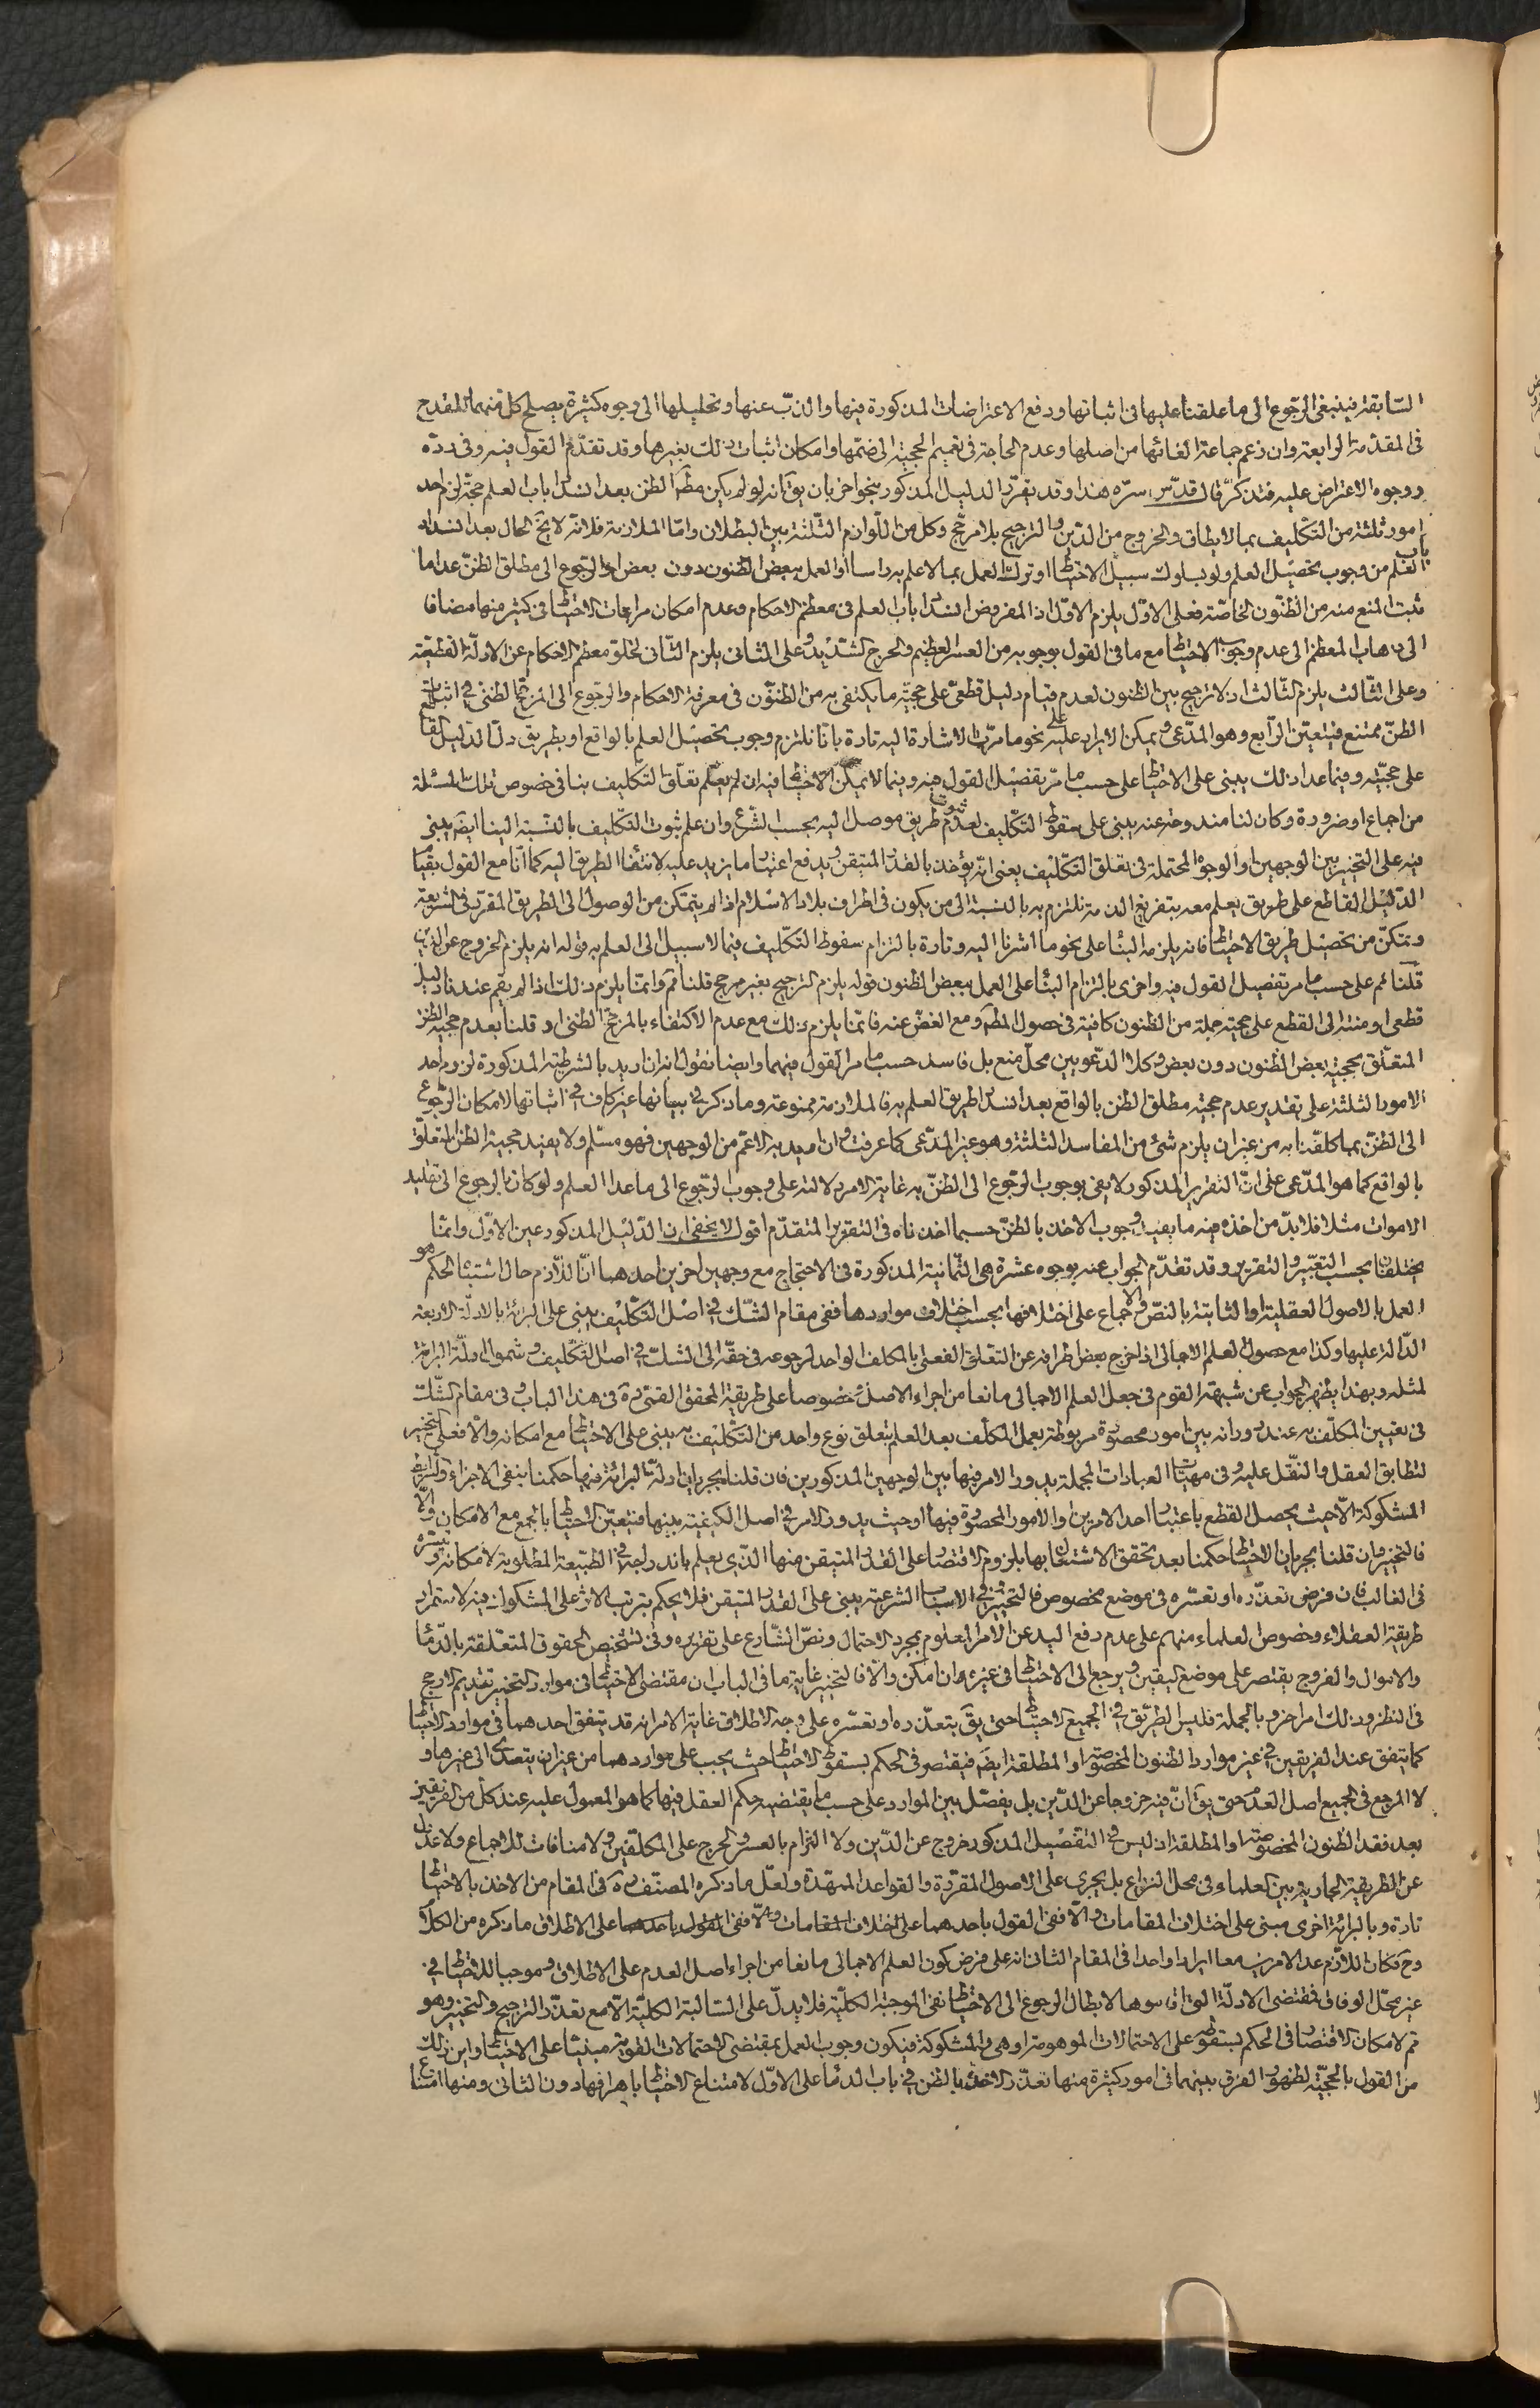 السّابقة فينبغى الرّجوع الى ما علقناه عليها فى اثباتها ودفع الاعتراضات المذكورة فيها والذبّ عنها وتحليلها الى وجوه كثيرة يصلح كل منهما للقدح
فى المقدّمة الرابعة وان زعم جماعة الغائها من اصلها وعدم الحاجة فى تعميم الحجّية الى ضمّها وامكان اثبات ذلك بغيرها وقد تقدّم القول فيه وفى ردّه
ووجوه الاعتراض عليه فتذكّر قال قدّس سرّه هذا وقد يقرّر الدليل المذكور بنحو اخر بان يقٓ انه لو لم يكن مطٓ الظن بعد انسداد باب العلم حجّة لزم احد
امور ثلثة من التكليف بما لا يطاق والخروج من الدّين والترجيح بلا مرجّح وكل من اللّوازم الثّلثة بيّن البطلان وامّا الملازمة فلانّه لا يخٓ الحال بعد انسداد
باب العلم من وجوب تحصيل العلم ولو بسلوك سبيل الاحتياط او ترك العمل بما لا علم به راسا او العمل ببعض الظنون دون بعض او الرّجوع الى مطلق الظنّ عدا ما
ثبت المنع منه من الظنّون الخاصّة فعلى الاوّل يلزم الاوّل اذ المفروض انسداد باب العلم فى معظم الاحكام وعدم امكان مراعات الاحتياط فى كثير منها مضافا
الى ذهاب المعظم الى عدم وجوب الاحتياط مع ما فى القول بوجوبه من العسر العظيم والحرج الشّديد وعلى الثانى يلزم الثّانى لخلوّ معظم الاحكام عن الادلّة القطعيّة
وعلى الثّالث يلزم الثّالث اذ لا ترجيح بين الظنون لعدم قيام دليل قطعىّ على حجيّة ما يكتفى به من الظنّون فى معرفة الاحكام والرّجوع الى المرجّح الظنّى فى اثبات
الظنّ ممتنع فيتعيّن الرّابع وهو المدّعى ويمكن الايراد عليه على نحو ما مرّت الاشارة اليه تارة بانّا نلتزم وجوب تحصيل العلم بالواقع او بطريق دلّ الدّليل القاطع
على حجيّته وفيما عدا ذلك يبنى على الاحتياط على حسب ما مرّ تفصيل القول فيه وفيما لا يمكن الاحتياط فيه ان لم يعلم تعلّق التكليف بنا فى خصوص تلك المسئلة
من اجماع او ضرورة وكان لنا مندوحة عنه يبنى على سقوط التّكليف لعدم ثبوت طريق موصل اليه بحسب الشّرع وان علم ثبوت التكليف بالنّسبة الينا ايضٓ يبنى
فيه على التخيير بين الوجهين او الوجوه المحتملة فى تعلق التكّليف بمعنى انّه يؤخذ بالقدر المتيقن ويدفع اعتبار ما يزيد عليه لانتفاء الطريق اليه كما انّا مع القول بقيام
الدّليل القاطع على طريق يعلم معه بتفريغ الذمة نلتزم به بالنسبة الى من يكون فى اطراف بلاد الاسلام اذا لم يتمكن من الوصول الى الطريق المقرّر فى الشريعة
وتمكّن من تحصيل طريق الاحتياط فانه يلزمه البناء على نحو ما اشرنا اليه وتارة بالتزام سقوط التكّليف فيما لا سبيل الى العلم به قوله انه يلزم الخروج عن الدّين
قلنا ثم على حسب ما مر تفصيل القول فيه واخرى بالتزام البناء على العمل ببعض الظنون قوله يلزم الترجيح بغير مرجح قلنا مم وانمّا يلزم ذلك اذا لم يقم عندنا دليل
قطعى او منته الى القطع على حجيّة جملة من الظنون كافية فى حصول المطٓ ومع الغضّ عنه فانمّا يلزم ذلك مع عدم الاكتفاء بالمرجّح الظنى او قلنا بعدم حجيّة الظن
المتعلّق بحجيّة بعض الظنون دون بعض وكلا الدّعويين محلّ منع بل فاسد حسب ما مر القول فيهما وايضا نقول انه ان اريد بالشرطيّة المذكورة لزوم احد
الامور الثلثة على تقدير عدم حجيّة مطلق الظن بالواقع بعد انسداد طريق العلم به فالملازمة ممنوعة وما ذكر فى بيانها غير كاف فى اثباتها لامكان الرّجوع
الى الظنّ بما كلّفنا به من غير ان يلزم شئ من المفاسد الثلثة وهو غير المدّعى كما عرفت وان اريد به الاعّم من الوجهين فهو مسلّم ولا يفيد حجية الظن المتعلّق
بالواقع كما هو المدّعى على انّ التقرير المذكور لا يفى بوجوب الرّجوع الى الظنّ به غاية الامر دلالته على وجوب الرّجوع الى ما عدا العلم ولو كان بالرجوع الى تقليد
الاموات مثلا فلا بدّ من اخذه فيه ما يفيد وجوب الاخذ بالظنّ حسبما اخذناه فى التقرير المتقدّم اقول لا يخفى ان الدّليل المذكور عين الاوّل وانمّا
يختلفان بحسب التعبير والتقرير وقد تقدّم الجواب عنه بوجوه عشرة هى الثّمانية المذكورة فى الاحتجاج مع وجهين اخرين احدهما انّ اللّازم حال اشتباه الحكم هو
العمل بالاصول العقلية او الثابتة بالنصّ والاجماع على اختلافها بحسب اختلاف مواردها ففى مقام الشّك فى اصل التكّليف يبنى على البرائة بالادلّة الاربعة
الدّالة عليها وكذا مع حصول العلم الاجمالى اذا خرج بعض اطرافه عن التعلّق الفعلى بالمكلف الواحد لرجوعه فى حقّه الى الشكّ فى اصل التّكليف وشمول ادلّة البرائة
لمثله وبهذا يظهر الجواب عن شبهة القوم فى جعل العلم الاجمالى مانعا من اجراء الاصل خصوصا على طريقة المحقق القمىّ ره فى هذا الباب وفى مقام الشّك
فى تعيين المكلّف به عند دورانه بين امور محصورة مربوطة بعمل المكلّف بعد العلم بتعلق نوع واحد من التّكليف به يبنى على الاحتياط مع امكانه والّا فعلى التخيير
لتطابق العقل والنقّل عليه وفى مهيّات العبادات المجملة يدور الامر فيها بين الوجهين المذكورين فان قلنا بجريان ادلّة البرائة فيها حكمنا بنفى الاجزاء والشرايط
المشكوكة الّا حيث يحصل القطع باعتبار احد الامرين او الامور المحصورة فيها او حيث يدور الامر فى اصل الكيفيّة بينها فيتعيّن الاحتياط بالجمع مع الامكان والّا
فالتخيير وان قلنا بجريان الاحتياط حكمنا بعد تحقق الاشتغال بها بلزوم الاقتصار على القدر المتيقن منها الذّى يعلم باندراجه فى الطّبيعة المطلوبة لامكانه وتيسّره
فى الغالب فان فرض تعذّره او تعسّره فى موضع مخصوص فالتخيير وفى الاسباب الشرعية يبنى على القدر المتيقن فلا يحكم بترتب الاثر على المشكوك فيه لاستمرار
طريقة العقلاء وخصوص العلماء منهم على عدم رفع اليد عن الامر المعلوم بمجرد الاحتمال ونصّ الشّارع على تقريره وفى تشخيص الحقوق المتعلّقة بالدّماء
والاموال والفروج يقتصر على موضع اليقين ويرجع الى الاحتياط فى غيره ان امكن والّا فالتخيير غاية ما فى الباب ان مقتضى الاحتياط فى موارد التخيير تقديم الارجح
فى النظر وذلك امر اخر وبالجملة فليس الطرّيق فى الجميع الاحتياط حتى يقٓ بتعذّره او تعسّره على وجه الاطلاق غاية الامر انه قد يتفق احدهما فى موارد الاحتياط
كما يتفق عند الفريقين فى غير موارد الظنون المخصوصة او المطلقة ايضٓ فيقتصر فى الحكم بسقوط الاحتياط حيث يجب على مواردهما من غير ان يتعدى الى غيرها و
لا المرجع فى الجميع اصل العدم حتى يقٓ انّ فيه خروجا عن الدّين بل يفصّل بين الموارد على حسب ما يقتضيه حكم العقل فيها كما هو المعمول عليه عند كل من الفريقين
بعد فقد الظنون المخصوصة او المطلقة اذ ليس فى التفصيل المذكور خروج عن الدّين ولا التزام بالعسر والحرج على المكلّفين ولا منافات للاجماع ولا عدول
عن الطريقة الجارية بين العلماء وفى محل النزاع بل يجرى على الاصول المقرّرة والقواعد الممهّدة ولعّل ما ذكره المصنّف ره فى المقام من الاخذ بالاحتياط
تارة وبالبرائة اخرى مبنى على اختلاف المقامات والّا ففى القول باحدهما على الاطلاق ما ذكره من الكلام
وحٓ فكان اللّازم عد الامرين معا ايرادا واحدا فى المقام الثانى انه على فرض كون العلم الاجمالى مانعا من اجراء اصل العدم على الاطلاق وموجبا للاحتياط فى
غير محّل الوفاق فمقتضى الادلّة التى اقاموها لابطال الرجوع الى الاحتياط نفى الموجبة الكلّية فلا يدلّ على السّالبة الكليّة الّا مع تعذّر الترجيح والتخيير وهو
مم لامكان الاقتصار فى الحكم بسقوطه على الاحتمالات الموهومة او هى والمشكوكة فيكون وجوب العمل بمقتضى الاحتمالات القوية مبنيّا على الاحتياط واين ذلك
من القول بالحجيّة لظهور الفرق بينهما فى امور كثيرة منها تعذّر الاخذ بالظن فى باب الدماء على الاوّل لامتناع الاحتياط باهراقها دون الثانى ومنها امتناع